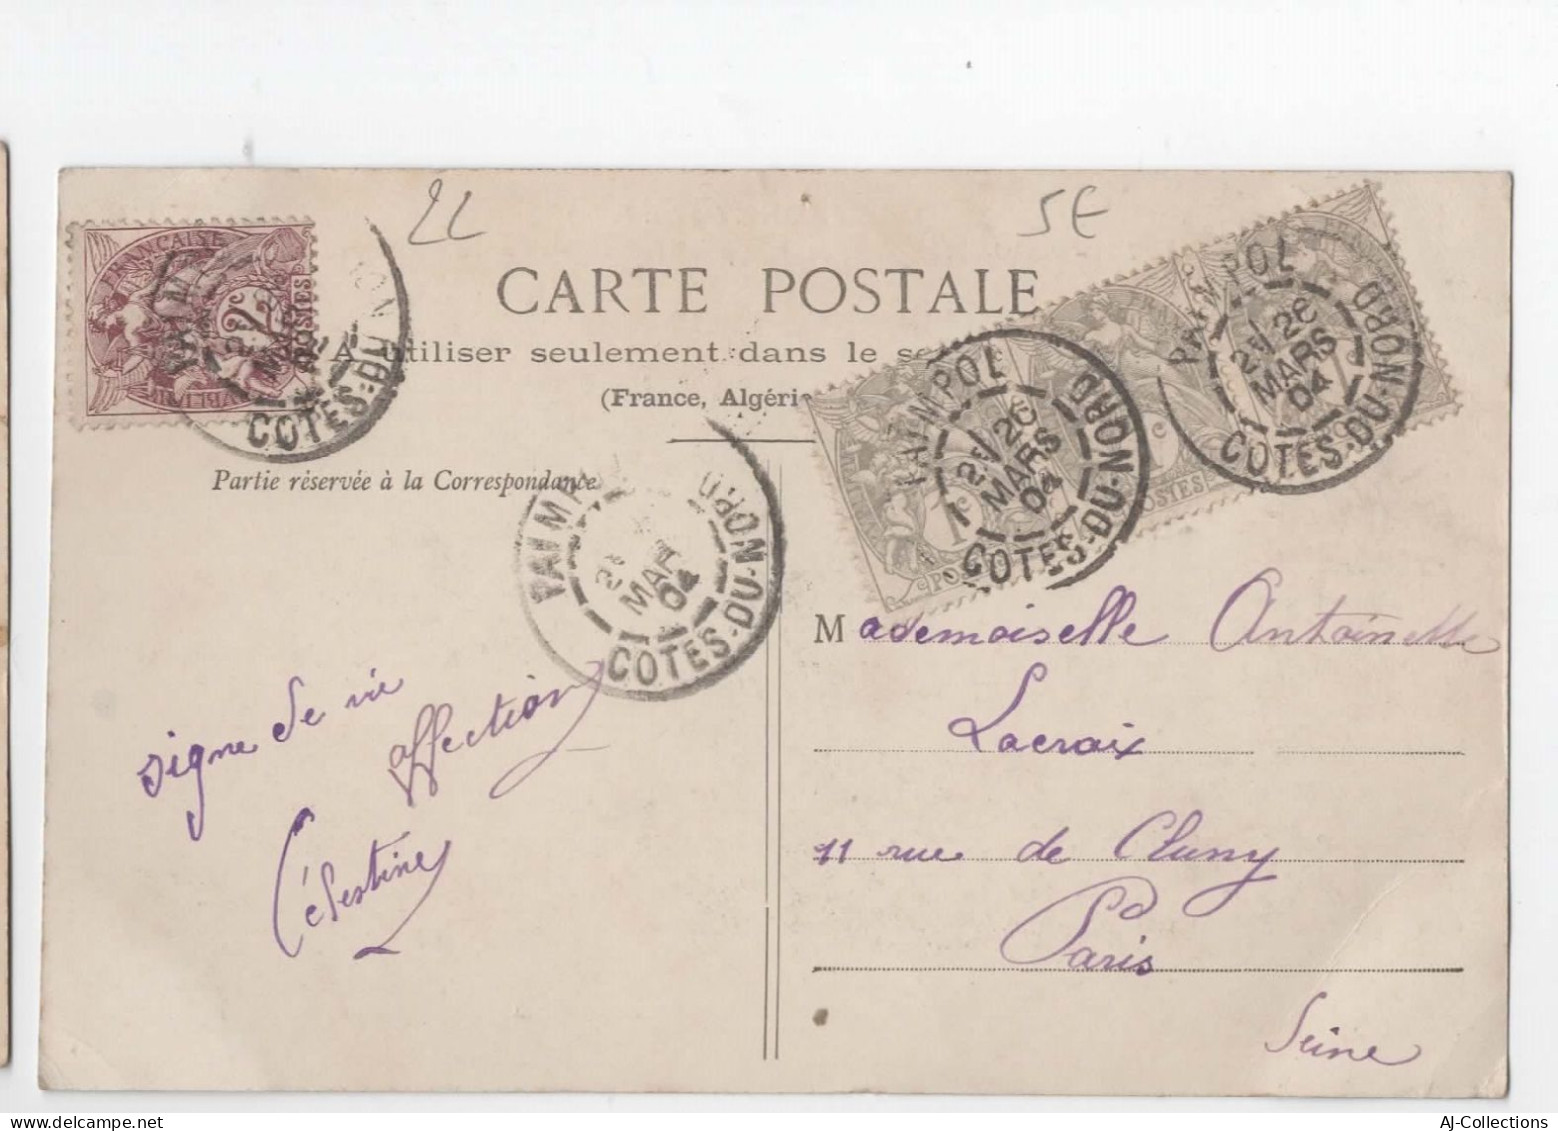 22
5€
CARTE POSTALE
A utiliser seulement dans le se
(France, Algérie
Partie réservée à la Correspondance
FRANÇAISE
2c
POSTES
COTES-DU-NORD
PAIMPOL
2E 26
MARS
04
COTES-DU-NORD
1c
POSTES
PAIMPOL
2E 26
MARS
04
COTES-DU-NORD
PAIMP
MAR
04
COTES-DU-NORD
signe de vie
affection
Célestine
Mademoiselle Antoinette
Lacroix
11 rue de Cluny
Paris
Seine
AJ-Collections